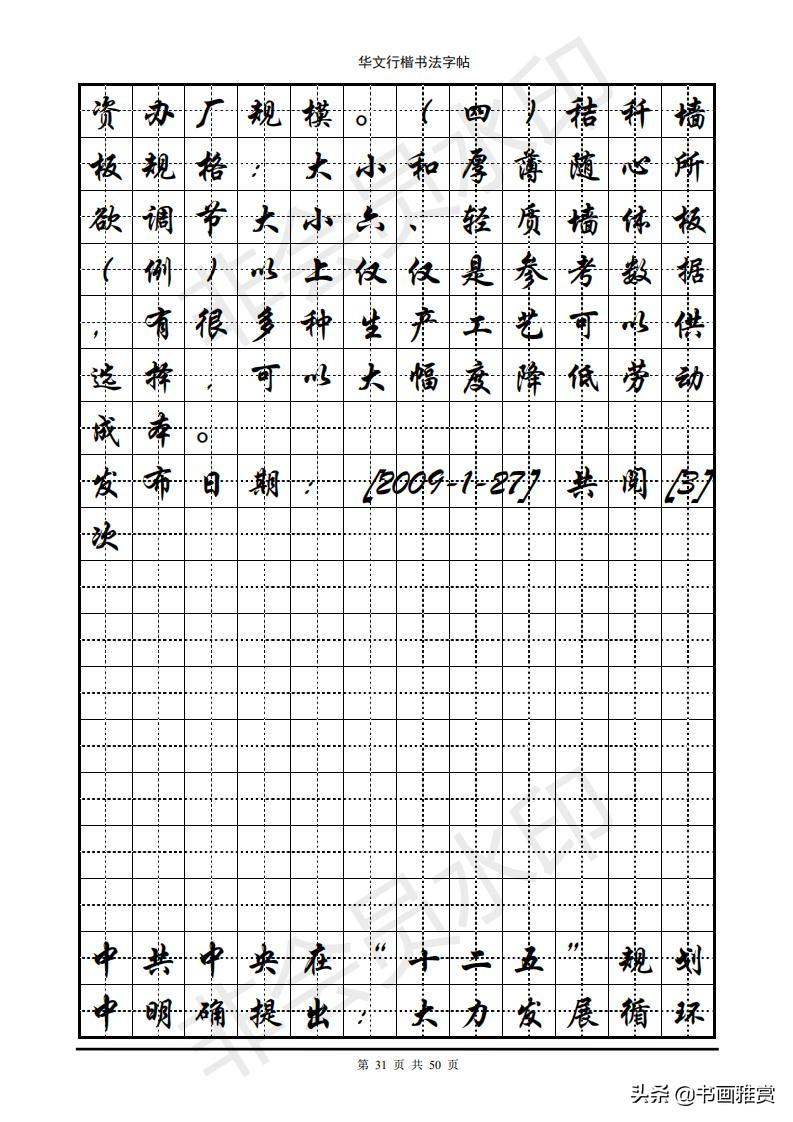 华文行楷书法字帖
资办厂规模。（四）秸秆墙
板规格：大小和厚薄随心所
欲调节大小六、轻质墙体板
（例）以上仅仅是参考数据
，有很多种生产工艺可以供
选择，可以大幅度降低劳动
成本。
发布日期： [2009-1-27] 共阅[3]
次
中共中央在“十二五”规划
中明确提出：大力发展循环
第 31 页 共 50 页
非会员水印
非会员水印
头条 @书画雅赏